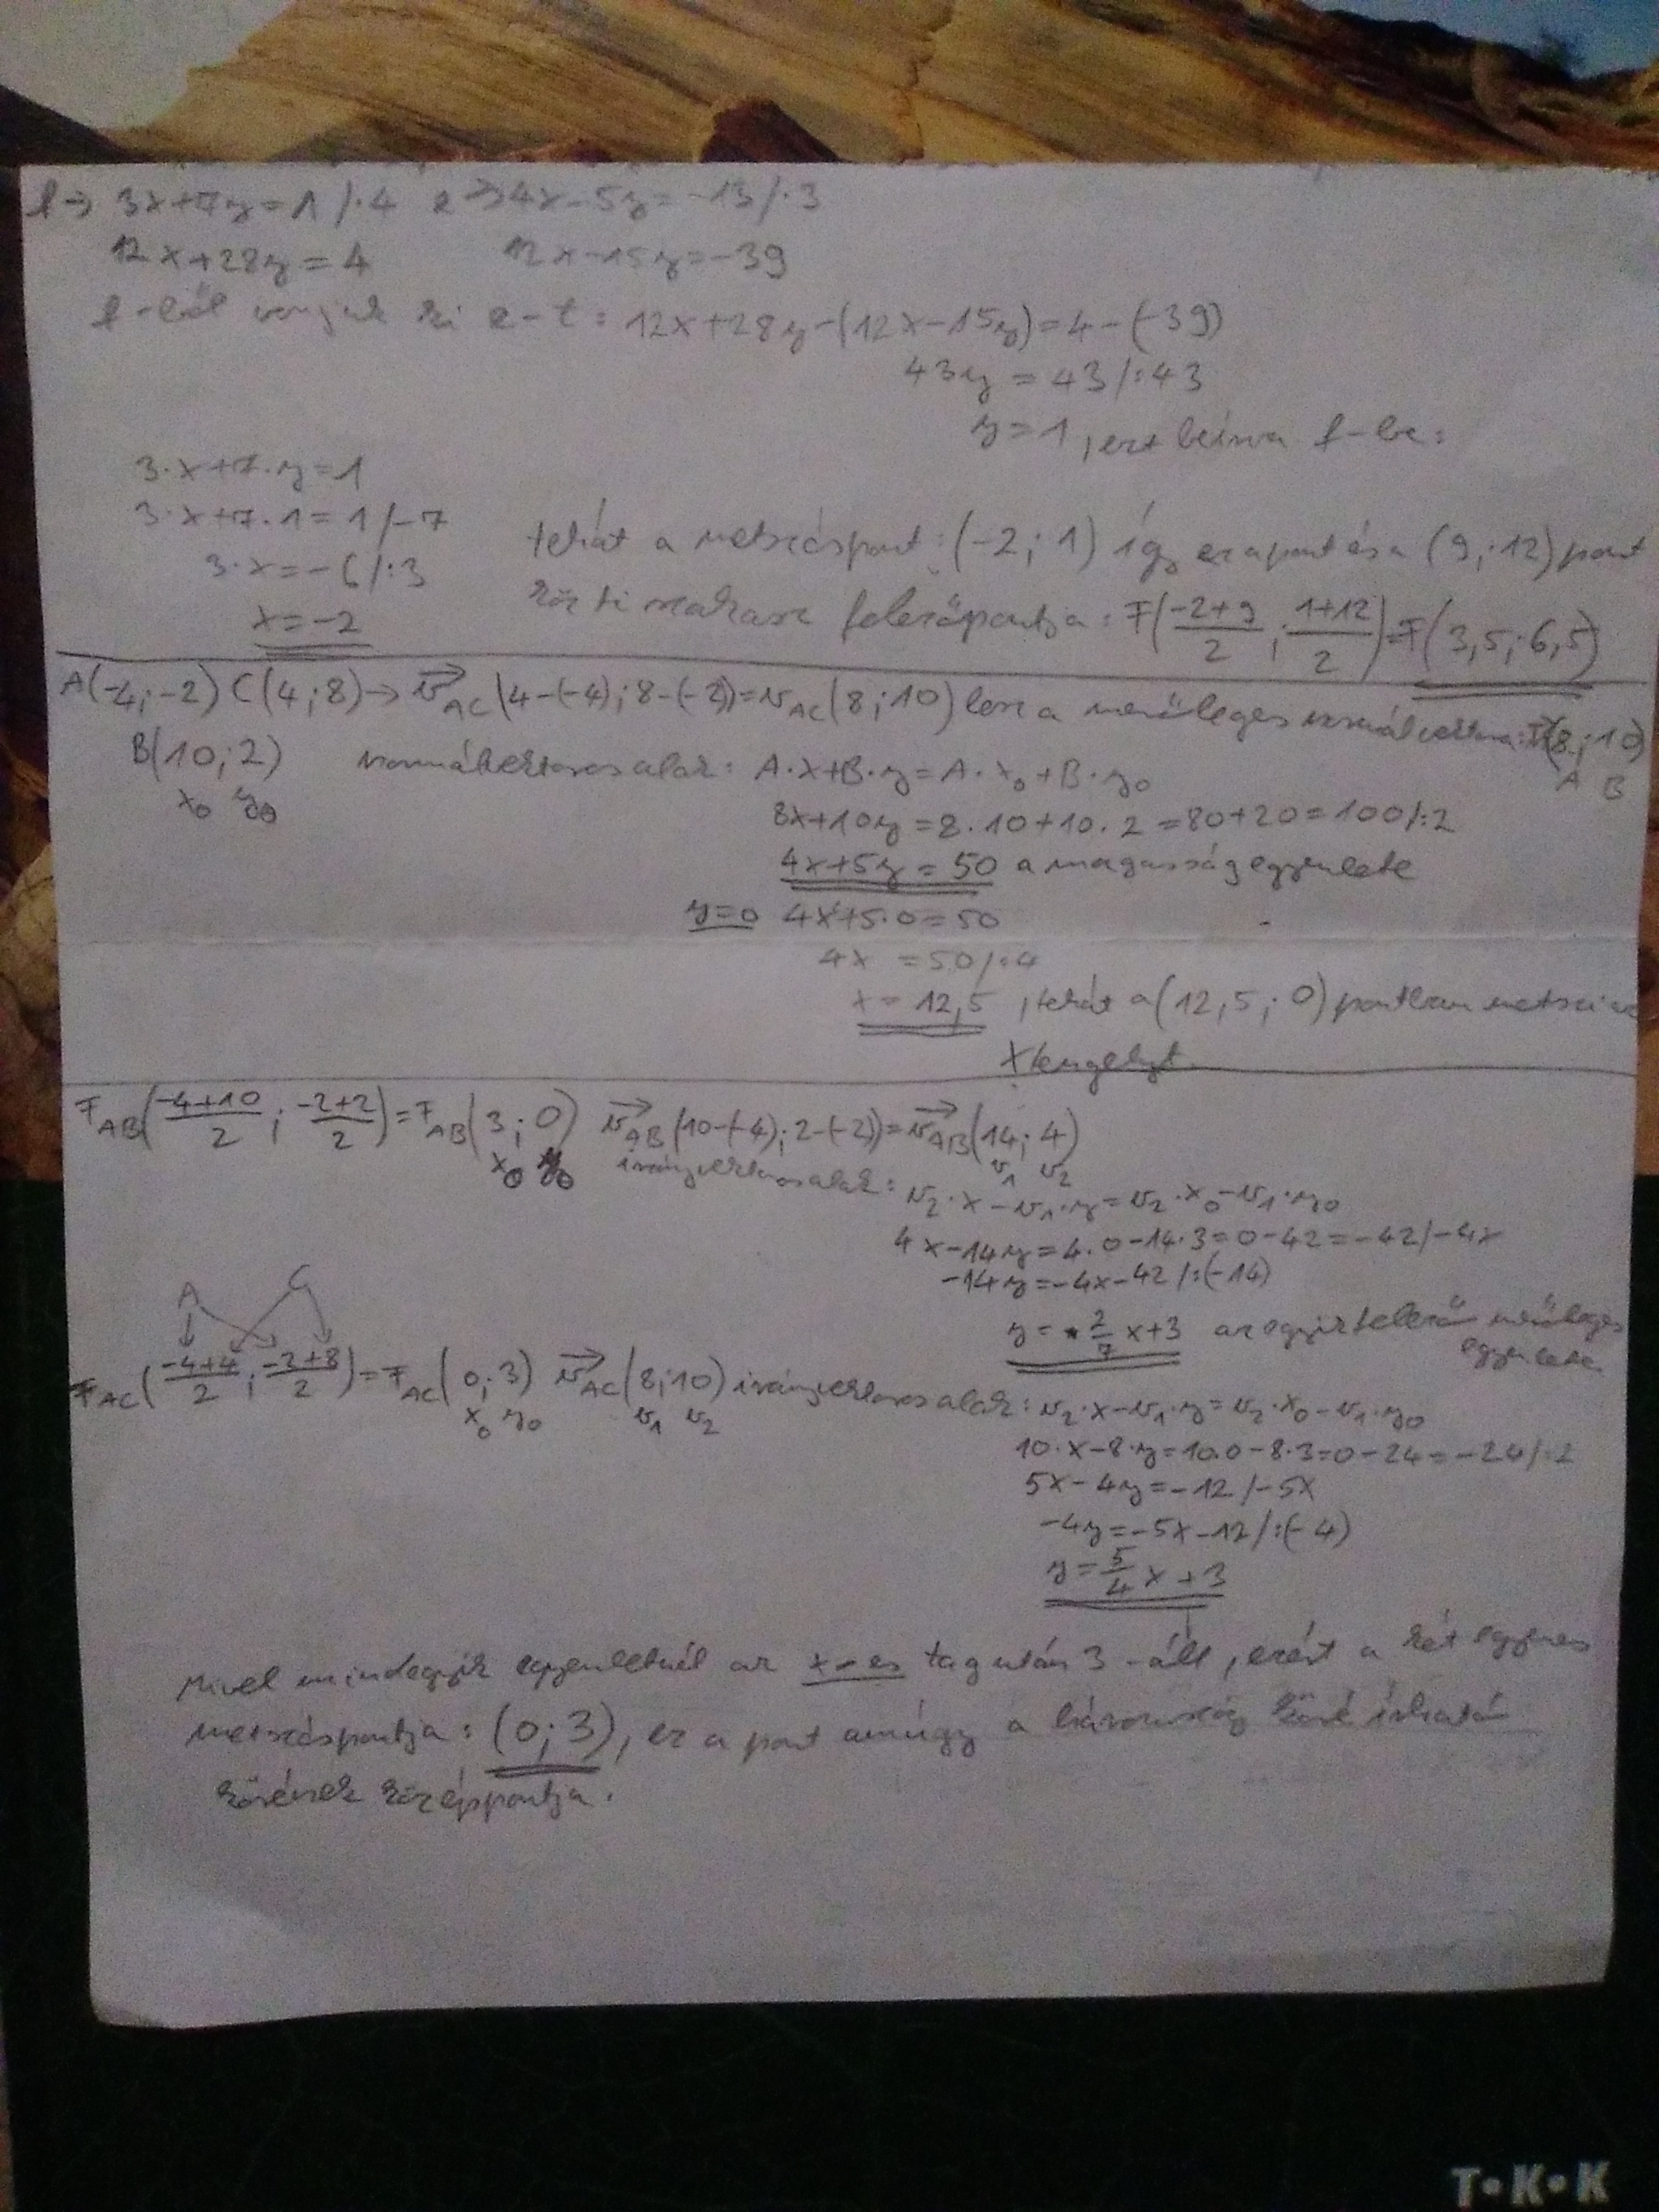 f→ 3x+7y=1 /·4 e→4x-5y=-13/·3
12x+28y=4 12x-15y=-39
f-ből vonjuk ki e-t: 12x+28y-(12x-15y)=4-(-39)
43y = 43/:43
y=1, ezt beírva f-be:
3·x+7·y=1
3·x+7·1=1/-7
3·x=-6/:3
x=-2
tehát a metszéspont: (-2;1) így ez a pont és a (9;12) pont
közti szakasz felezőpontja: F(-2+9/2 ; 1+12/2)=F(3,5;6,5)
A(-4;-2) C(4;8)→ v⃗AC(4-(-4);8-(-2))=vAC(8;10) lesz a merőleges normálvektora: (8;10)
A B
B(10;2) normálvektoros alak: A·x+B·y=A·x₀+B·y₀
x₀ y₀
8x+10y=8·10+10·2=80+20=100/:2
4x+5y=50 a magasság egyenlete
y=0 4x+5·0=50
4x =50/:4
x=12,5, tehát a (12,5;0) pontban metszi az
x tengelyt.
FAB(-4+10/2 ; -2+2/2)=FAB(3;0) v⃗AB(10-(-4);2-(-2))=v⃗AB(14;4)
x₀ y₀ v₁ v₂
irányvektoros alak: v₂·x-v₁·y=v₂·x₀-v₁·y₀
4x-14y=4·0-14·3=0-42=-42/-4x
-14y=-4x-42/:(-14)
y=2/7x+3 az egyik felező merőleges
egyenlete
A C
FAC(-4+4/2 ; -2+8/2)=FAC(0;3) v⃗AC(8;10) irányvektoros alak: v₂·x-v₁·y=v₂·x₀-v₁·y₀
x₀ y₀ v₁ v₂
10·x-8·y=10·0-8·3=0-24=-24/:2
5x-4y=-12/-5x
-4y=-5x-12/:(-4)
y=5/4x+3
Mivel mindegyik egyenletnél az x-es tag után 3 áll, ezért a két egyenes
metszéspontja: (0;3), ez a pont amúgy a háromszög köré írható
körének középpontja.
T·K·K